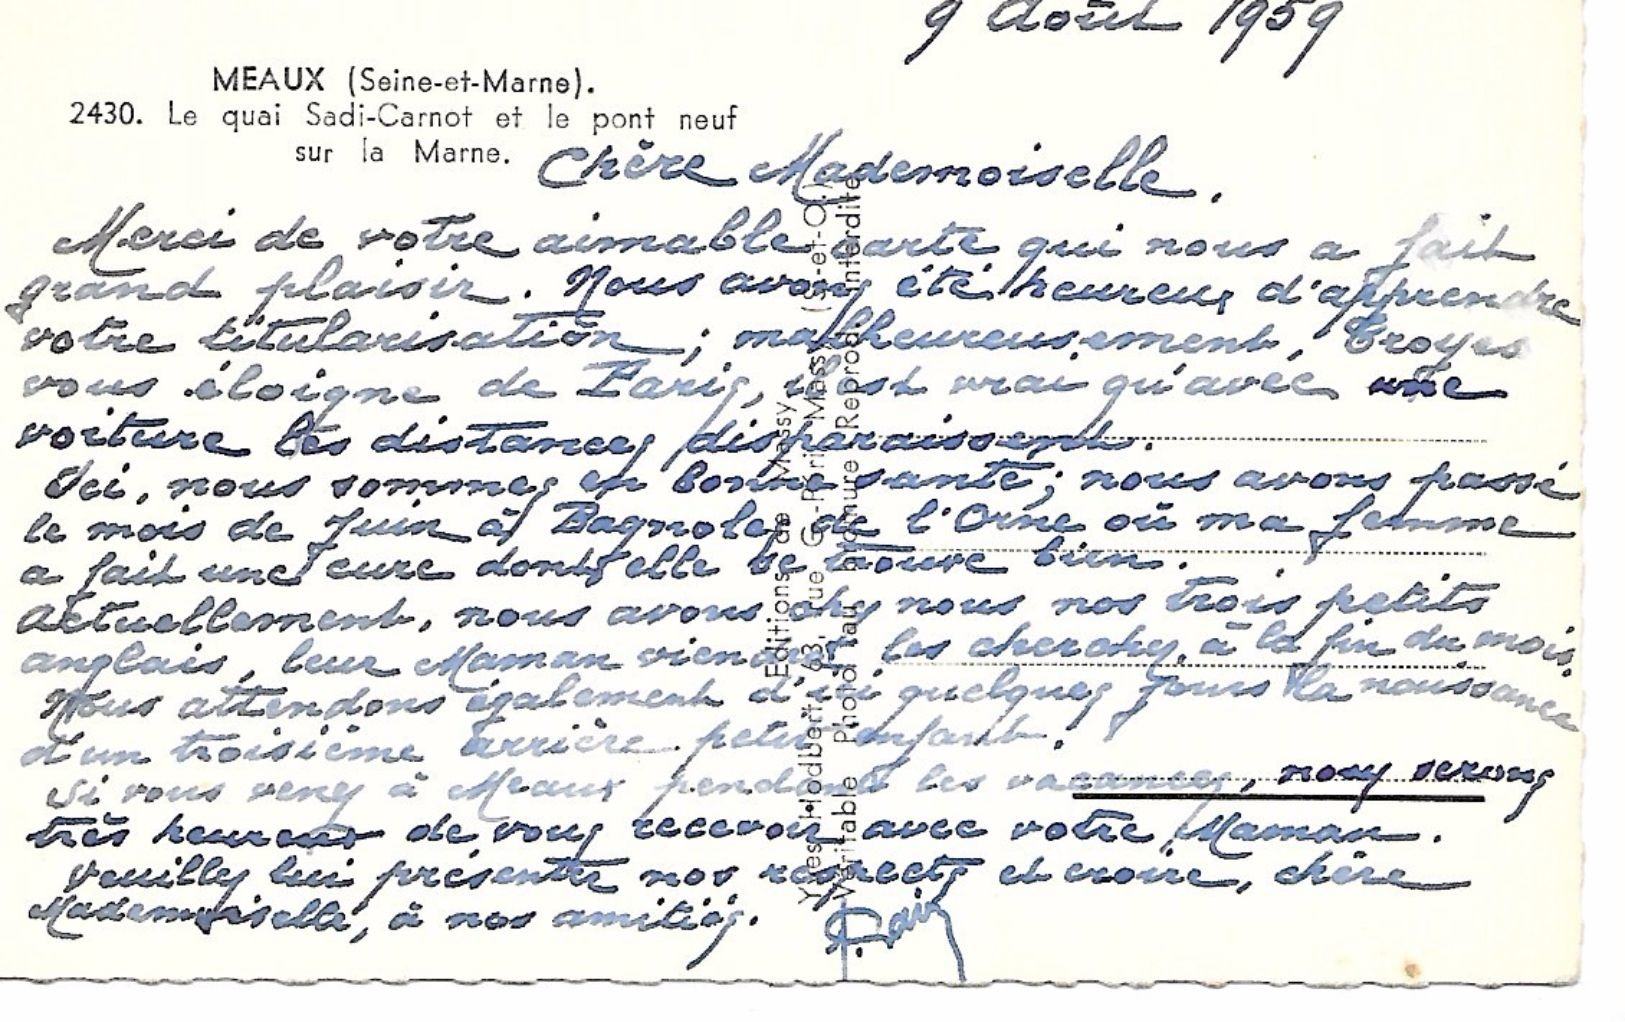 9 Août 1959
MEAUX (Seine-et-Marne).
2430. Le quai Sadi-Carnot et le pont neuf
sur la Marne.
Chère Mademoiselle,
Merci de votre aimable carte qui nous a fait
grand plaisir. Nous avons été heureux d'apprendre
votre titularisation ; malheureusement, Troyes
vous éloigne de Paris, il est vrai qu'avec une
voiture les distances disparaissent.
Ici, nous sommes en bonne santé ; nous avons passé
le mois de Juin à Bagnoles de l'Orne où ma femme
a fait une cure dont elle se trouve bien.
Actuellement, nous avons chez nous nos trois petits
anglais, leur Maman viendra les chercher, à la fin du mois.
Nous attendons également d'ici quelques jours la naissance
d'un troisième arrière petit enfant.
Si vous venez à Meaux pendant les vacances, nous serons
très heureux de vous recevoir avec votre Maman.
Veuillez lui présenter nos respects et croire, chère
Mademoiselle, à nos amitiés.
Editions de Massy
Yves Hodbert, 63, rue Gx-Ris Mass (S.-et-O.)
Véritable Photo au Bromure Reprod. Interdite